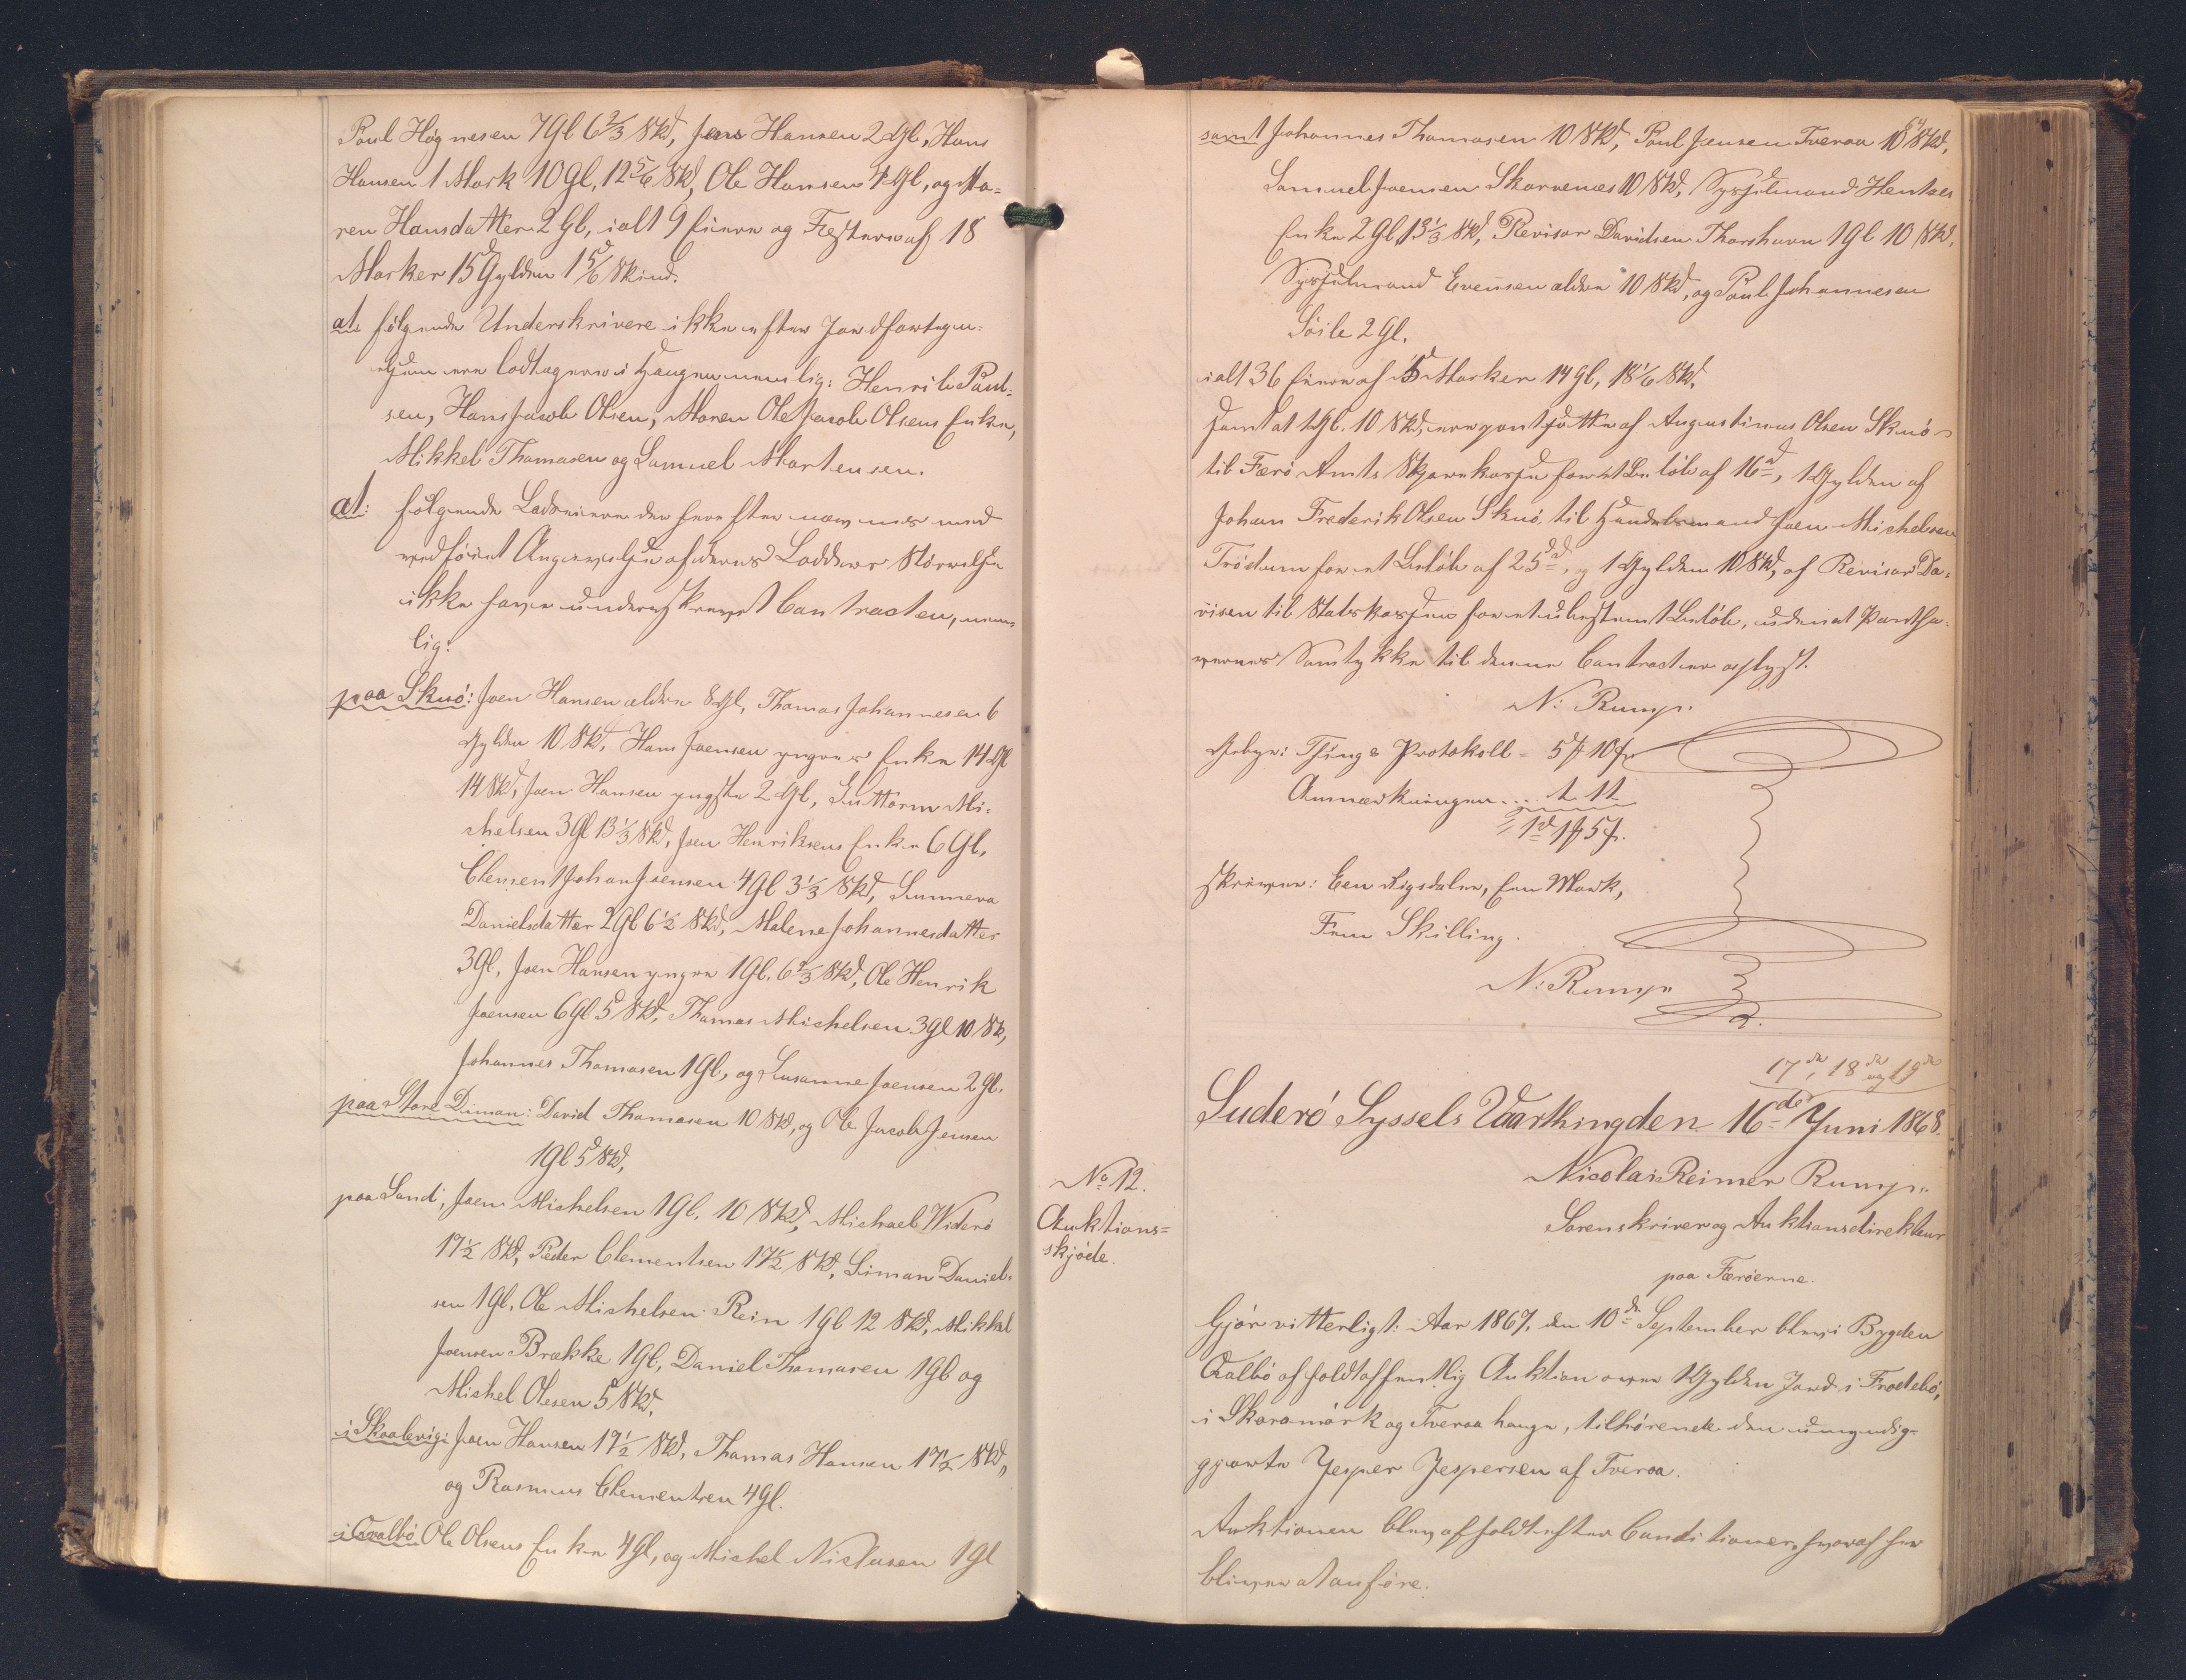 Poul Høgnesen 7 Gl 6 2/3 Skd, Jens Hansen 2 Gl, Hans
Hansen 1 Mark 10 Gl, 12 5/6 Skd, Ole Hansen 4 Gl, og Ma-
ren Hansdatter 2 Gl, ialt 9 Eiere og Fæstere af 18
Marker 15 Gylden 1 5/6 Skind.
at følgende Underskrivere ikke efter Jordfortegn-
elsen ere lodtagere i Haugen nemlig: Henrik Paul-
sen, Hans Jacob Olsen, Maren Ole Jacob Olsens Enke,
Mikkel Thomasen og Samuel Mortensen.
at: følgende Lodseiere der herefter nævnes med
vedføiet Angivelse af deres Lodders Størrelse
ikke have underskrevet Contracten, nem-
lig:
paa Skuö: Joen Hansen ældre 8 Gl, Thomas Johannesen 6
Gylden 10 Skd, Hans Joensen yngres Enke 14 Gl
14 Skd, Joen Hansen yngste 2 Gl, Guttorm Mi-
chelsen 3 Gl 13 1/3 Skd, Joen Henriksens Enke 6 Gl,
Clement Johan Joensen 4 Gl 3 1/3 Skd, Sunneva
Danielsdatter 2 Gl 6 1/2 Skd, Malene Johannesdatter
3 Gl, Joen Hansen yngre 1 Gl. 6 2/3 Skd, Ole Henrik
Joensen 6 Gl 5 Skd, Thomas Michelsen 3 Gl 10 Sk,
Johannes Thomasen 1 Gl, og Susanne Joensen 2 Gl.
paa Store Dimon: David Thomasen 10 Skd, og Ole Jacob Jensen
1 Gl 5 Skd,
paa Sand, Joen Michelsen 1 Gl. 10 Skd, Michael Widerö
17 1/2 Skd, Peder Clementsen 17 1/2 Skd, Simon Daniel-
sen 1 Gl, Ole Michelsen Rein 1 Gl 12 Skd, Mikkel
Joensen Brekke 1 Gl, Daniel Thomasen 1 Gl og
Michel Olesen 5 Skd.
i Skaalevig: Joen Hansen 17 1/2 Skd, Thomas Hansen 17 1/2 Skd,
og Rasmus Clementsen 4 Gl.
i Qvalbö Ole Olsens Enke 4 Gl, og Michel Niclasen 1 Gl
samt Johannes Thomasen 10 Skd, Poul Jensen Tveraa 10 Skd,
Samuel Joensen Skarvenæs 10 Skd, Sysselmand Hentzes
Enke 2 Gl, 13 1/3 Skd, Revisor Davidsen Thorshavn 1 Gl 10 Skd,
Sysselmand Evensen ældre 10 Skd, og Poul Johannesen
Söile 2 Gl.
ialt 36 Eiere af 5 Marker 14 Gl, 18 1/6 Skd.
samt at 1 Gl. 10 Skd, ere pantsatte af Augustinus Olsen Skuö
til Færö Amts Skovekasse for et Beløb af 16 rd, 1 Gylden af
Johan Frederik Olsen Skuö til Handelsmand Joen Michelsen
Trödum for et Beløb af 25 rd, og 1 Gylden 10 Skd, af Revisor Da-
visen til Statskassen for et ubestemt Beløb, uden at Pantha-
vernes Samtykke til denne Contract er oplyst.
N: Rump.
Gebyr: Things Protokoll - 5 # 10 ß
Anmærkningen . . . 1. 11.
1 rd 1 # 5 ß.
skriver: Een Rigsdaler, Een Mark,
Fem Skilling.
N: Rump
17de, 18de og 19de
Suderö Syssels Vaarthing den 16de Juni 1868.
No 12.
Auktions-
skjöde.
Nicolai Reimer Rump.
Sorenskriver og Auktionsdirekteur
paa Færöerne.
Gjör vitterligt: Aar 1867, den 10de September blev i Bygden
Qvalbö afholdt offentlig Auktion over 1 Gylden Jord i Frodebö,
i Skoramörk og Tveraa hauge, tilhørende den umyndig-
gjorte Jesper Jespersen af Tveraa.
Auktionen blev afholdt efter Conditioner, hvoraf her
bliver at anføre.